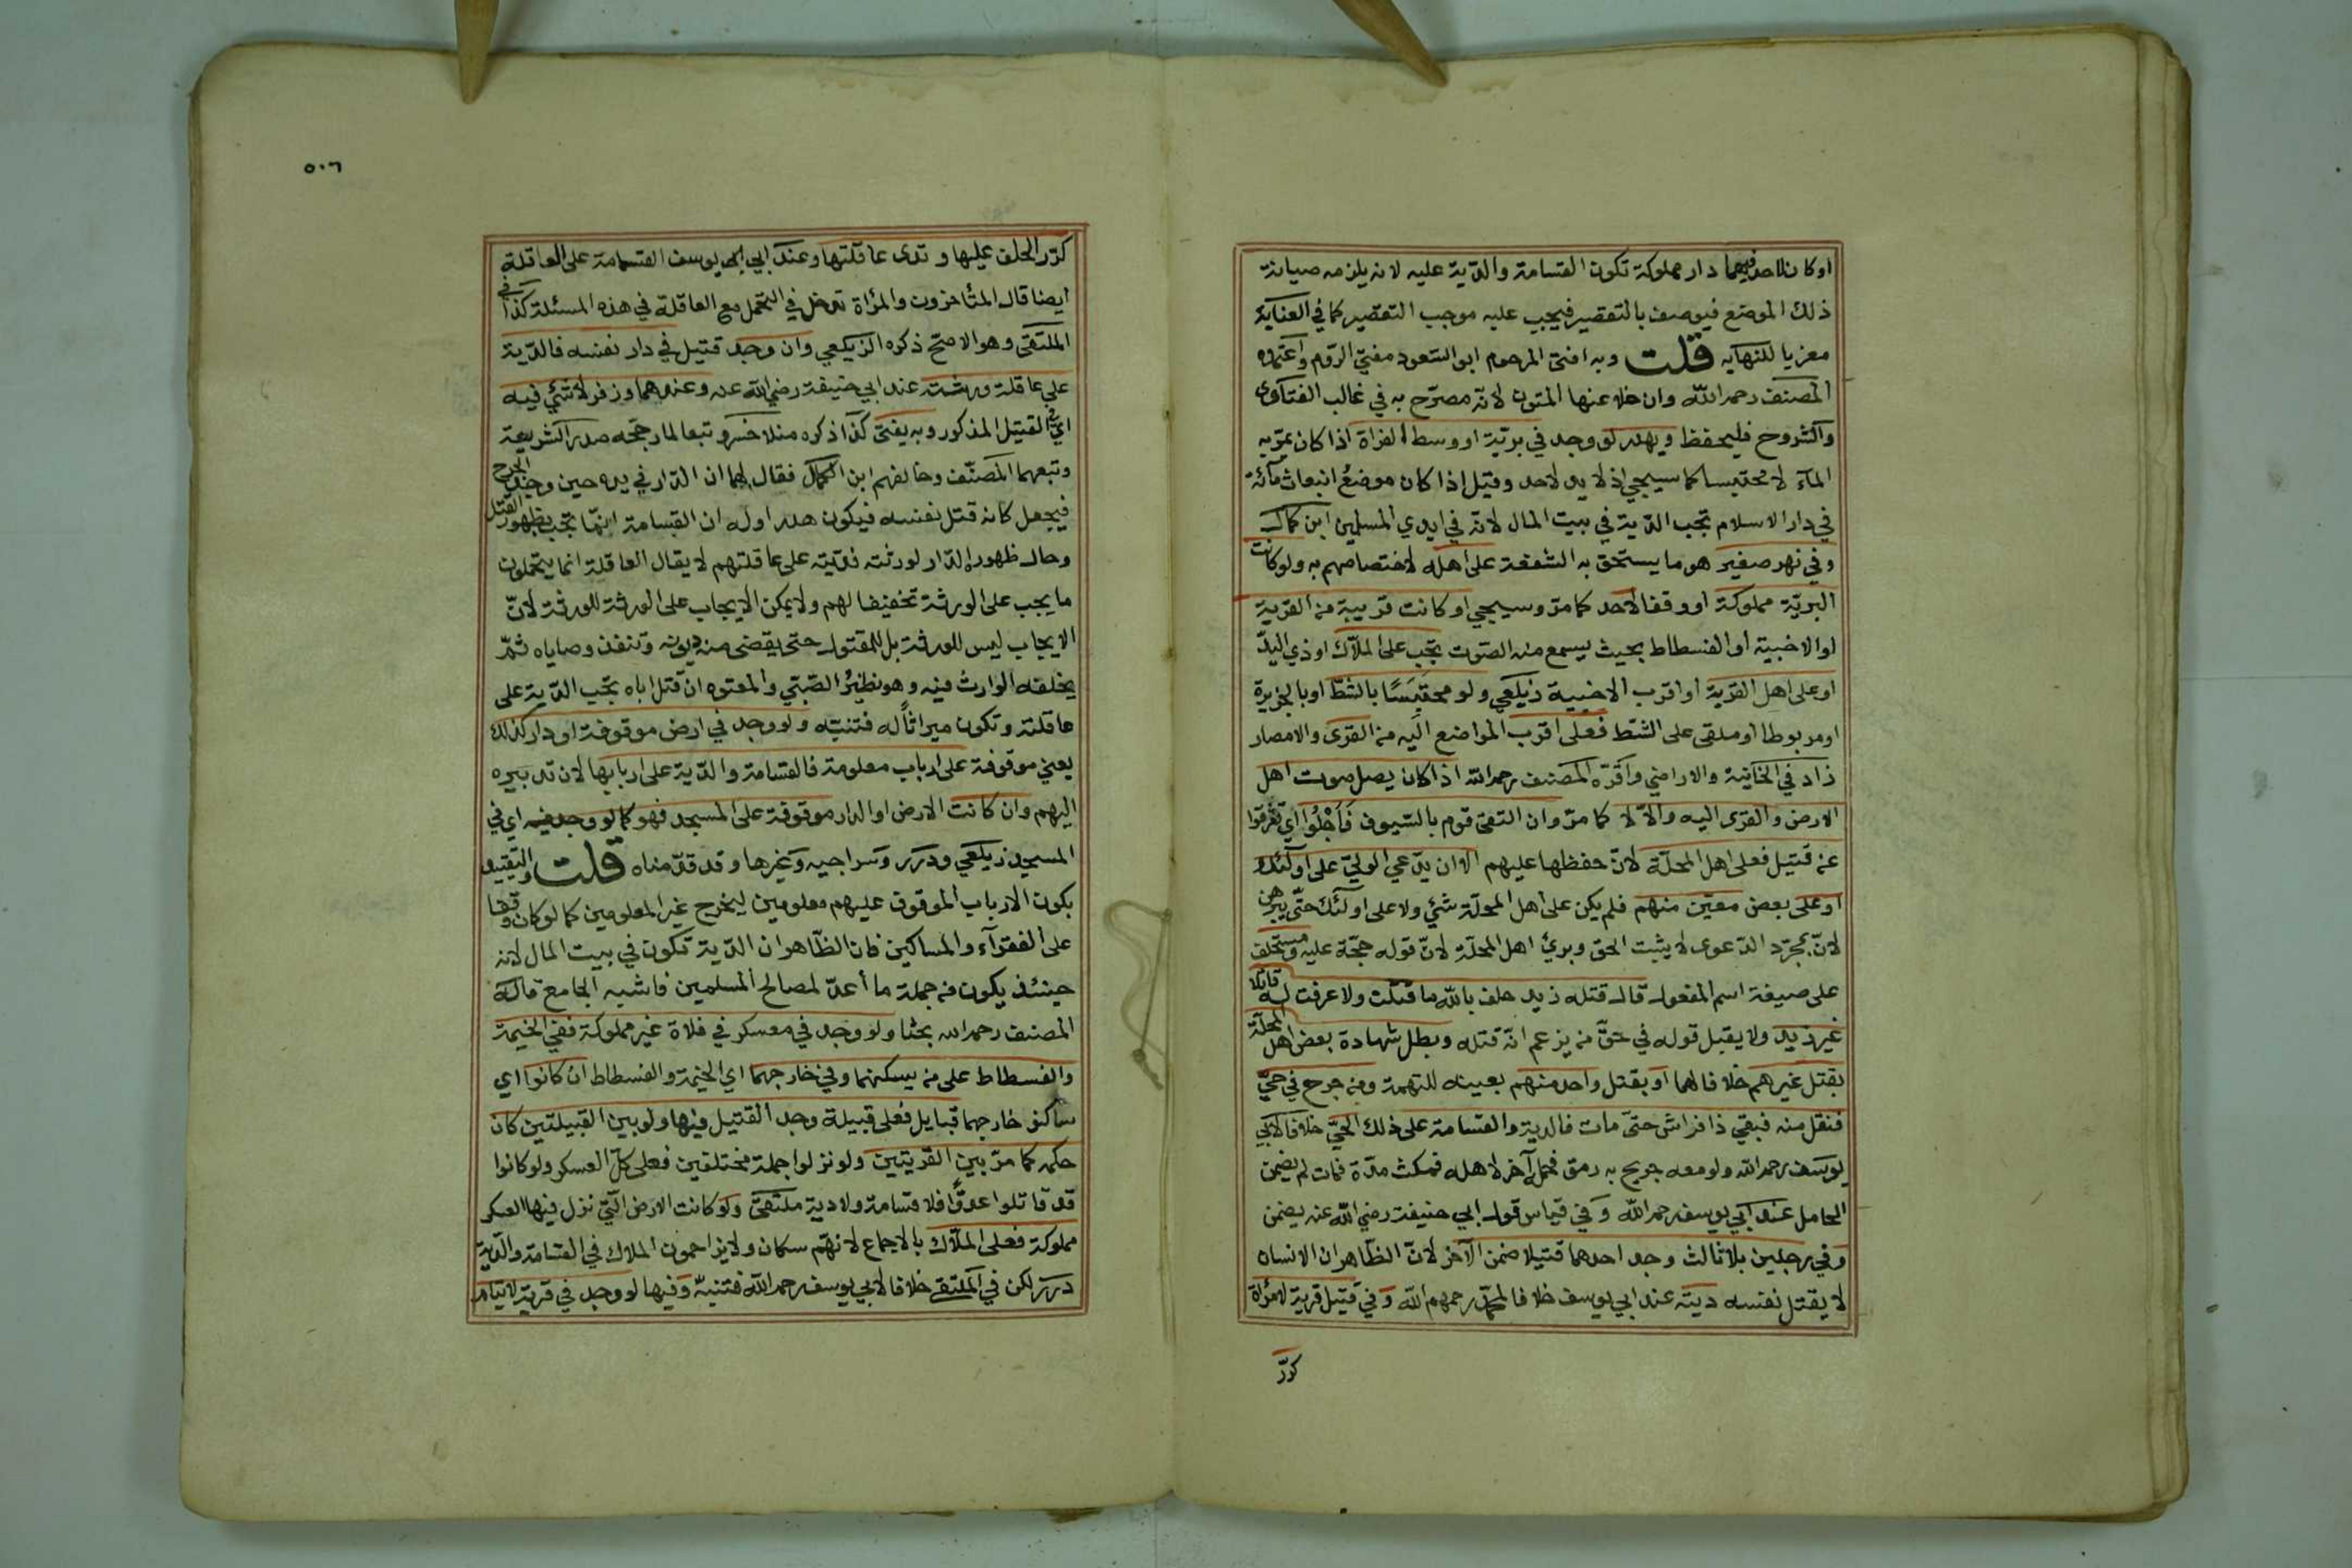 او كان لاحد فيهما دار مملوكة تكون القسامة والدّية عليه لانه يلزمه صيانة
ذلك الموضع فيوصف بالتقصير فيجب عليه موجب التقصير كما في العناية
معزيا للنهايه قلت وبه افتى المرحوم ابو السّعود مفتي الرّوم واعتمده
المصنف رحمه اللّه وان خلا عنها المتون لانّه مصرّح به في غالب الفتاوى
والشروح فليحفظ ويهدر لو وجد في بريّة او وسط الفراة اذا كان يمرّ به
الماء لا محتبسا كما سيجي اذ لا يد لاحد وقيل إذا كان موضعُ انبعاث مائه
في دار الاسلام تجب الدّية في بيت المال لانّه في ايدي المسلمين ابن كمال
وفي نهر صغير هو ما يستحق به الشفعة على اهله لاختصاصهم به ولو كانت
البريّة مملوكة او وقفا لاحد كما مرّ وسيجي او كانت قريبة من القرية
او الاخبية او الفسطاط بحيث يسمع منه الصّوت تجب على الملّاك او ذي اليدّ
او على اهل القرية او اقرب الاخبية زيلعي ولو محتبَسًا بالشطّ او بالجزيرة
او مربوطا او ملقى على الشطّ فعلى اقرب المواضع اليه من القرى والامصار
زاد في الخانية والاراضي واقرّه المصنف رحمه الله اذا كان يصل صوت اهل
الارض والقرى اليه والّا لا كما مرّ وان التقى قوم بالسّيوف فَاَجْلُوا اي تفرّقوا
عن قتيل فعلى اهل المحلّة لانّ حفظها عليهم الا ان يدّعي الوليّ على اولئك
او على بعض معيّن منهم فلم يكن على اهل المحلّة شيء ولا على اولئك حتّى يبرهن
لانّ بمجرّد الدّعوى لا يثبت الحق وبرئ اهل المحلّة لانّ قوله حجّة عليه ومستحلف
على صيغة اسم المفعول قال قتله زيد حلف باللّه ما قتلت ولا عرفت له قاتلا
غير زيد ولا يقبل قوله في حقّ من يزعم انّه قتله وبطل شهادة بعض اهل المحلّة
بقتل غيرهم خلافا لهما او بقتل واحد منهم بعينه للتهمة ومن جرح في حيّ
فنقل منه فبقي ذا فراش حتى مات فالدية والقسامة على ذلك الحيّ خلافا لابي
يوسف رحمه الله ولو معه جريح به رمق فحمل آخر لاهله فمكث مدّة فمات لم يضمن
الحامل عند ابي يوسف رحمه اللّه وفي قياس قول ابي حنيفة رضي اللّه عنه يضمن
وفي رجلين بلا ثالث وجد احدهما قتيلا ضمن الآخر لانّ الظّاهر ان الانسان
لا يقتل نفسه ديته عند ابي يوسف خلافا لمحمّد رحمهم اللّه وفي قتيل قرية لامرُأة
كرّر
٥٠٦
كرّر الحلف عليها وتدى عاقلتها وعند ابي يوسف القسامة على العاقلة
ايضا قال المتأخرون والمرُأة تدخل في التحمل مع العاقلة في هذه المسئلة كذا في
الملتقى وهو الاصحّ ذكره الزيلعي وان وجد قتيل في دار نفسه فالدّية
على عاقلة ورثته عند ابي حنيفة رضي اللّه عنه وعندهما وزفر لا شئ فيه
اي في القتيل المذكور وبه يفتى كذا ذكره منلا خسرو تبعا لما رجّحه صدر الشريعة
وتبعهما المصنّف وخالفهم ابن الكمال فقال لهما ان الدّار في يده حين وجد الجرح
فيجعل كانه قتل نفسه فيكون هدرا وله ان القسامة انّما تجب بظهور القتل
وحال ظهوره الدّار لورثته فديته على عاقلتهم لا يقال العاقلة انما يتحملون
ما يجب على الورثة تخفيفا لهم ولا يمكن الايجاب على الورثة للورثة لانّ
الايجاب ليس للورثة بل للمقتول حتى يقضى منه ديونه وتنفذ وصاياه ثمّ
يخلفه الوارث فيه وهو نظيرُ الصّبّي والمعتوه ان قتل اباه تجب الدّية على
عاقلته وتكون ميراثاً له فتنبّه ولو وجد في ارض موقوفة او دار كذلك
يعني موقوفة على ارباب معلومة فالقسامة والدّية على اربابها لان تدبيره
اليهم وان كانت الارض او الدار موقوفة على المسجد فهو كما لو وجد فيه اي في
المسجد زيلعي ودرر وسراجيه وغيرها وقد قدّمناه قلت والتّقييد
بكون الارباب الموقوف عليهم معلومين ليخرج غير المعلومين كما لو كان وقفا
على الفقرآء والمساكين فان الظّاهر ان الدّية تكون في بيت المال لانه
حينئذ يكون من جملة ما اعدّ لمصالح المسلمين فاشبه الجامع قاله
المصنف رحمه الله بحثا ولو وجد في معسكر في فلاة غير مملوكة ففي الخيمة
والفسطاط على من يسكنهما وفي خارجهما اي الخيمة والفسطاط ان كانوا اي
ساكنو خارجهما قبايل فعلى قبيلة وجد القتيل فيها ولو بين القبيلتين كان
حكمه كما مرّ بين القريتين ولو نزلوا جملة مختلفين فعلى كلّ العسكر ولو كانوا
قد قاتلوا عدوًّا فلا قسامة ولا دية ملتقى ولو كانت الارض الّتي نزل فيها العسكر
مملوكة فعلى الملّاك بالاجماع لانّهم سكان ولا يزاحمون الملاك في القسامة والدّية
درر لكن في الملتقى خلافا لابي يوسف رحمه اللّه فتنبّه وفيها لو وجد في قرية لايتام